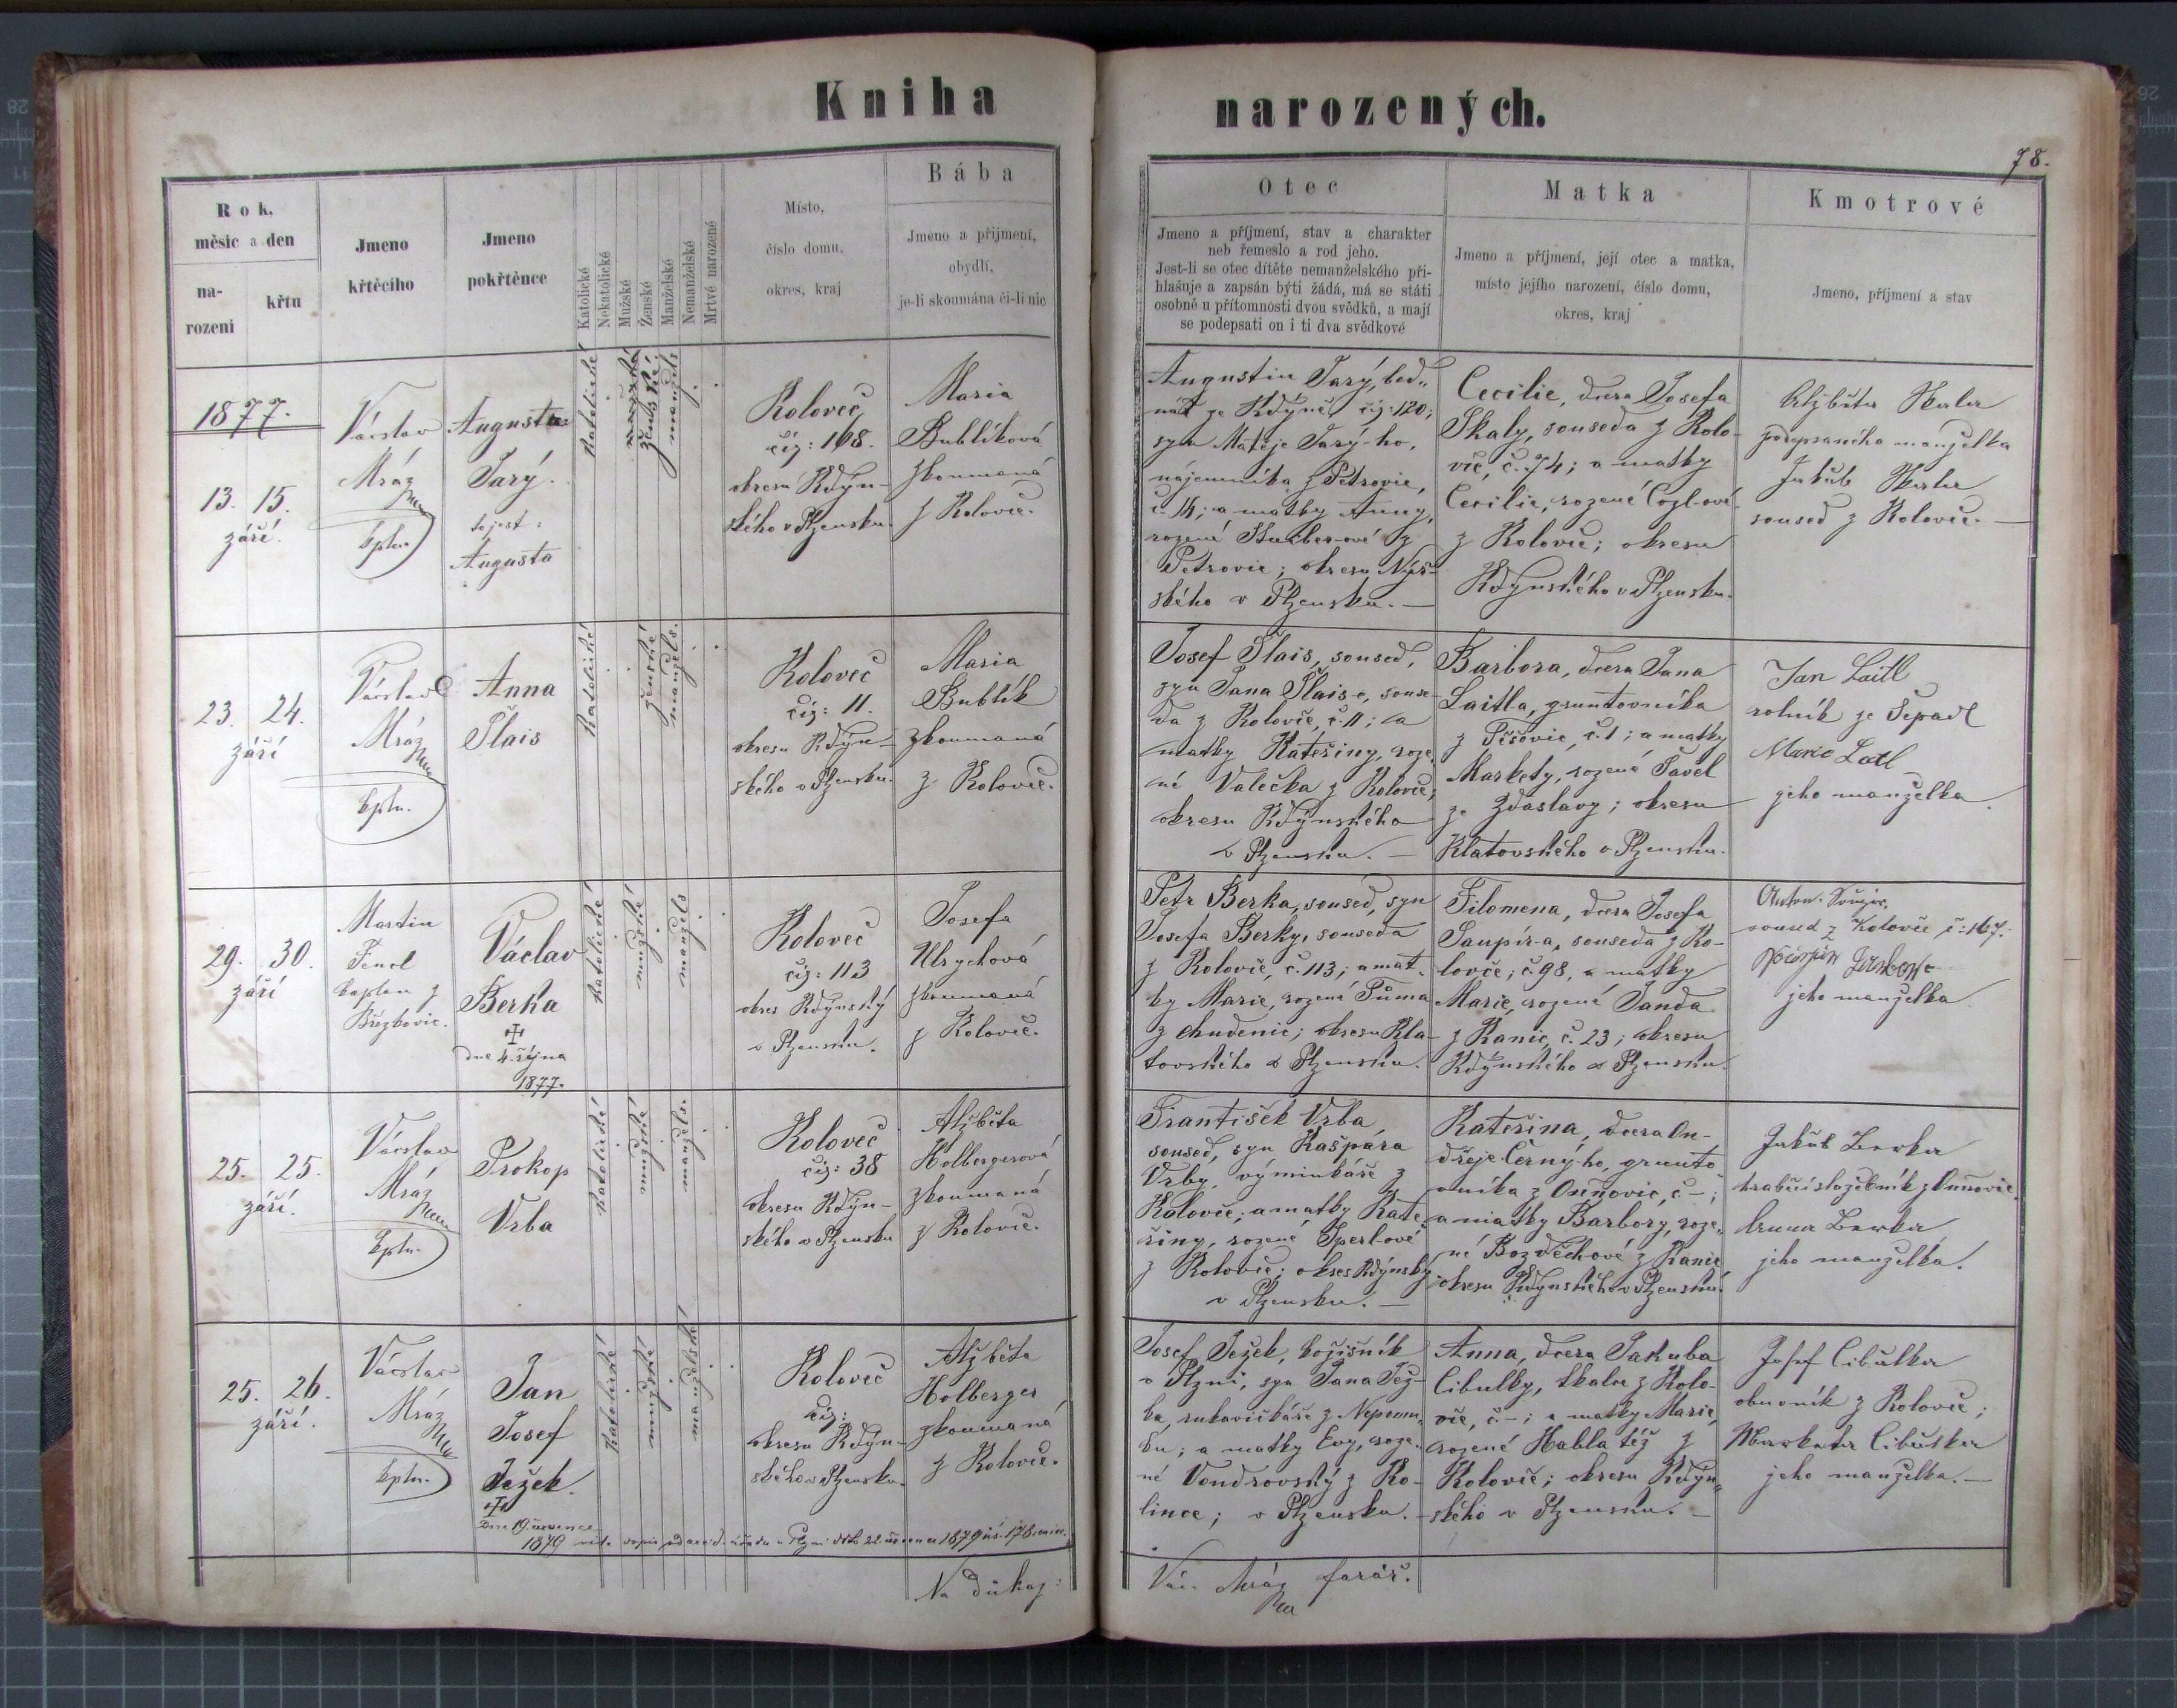 Kniha
narozených.
78.
Rok,
měsíc a den
na-
rozeni
křtu
Jmeno
křtěcího
Jmeno
pokřtěnce
Katolické
Nekatolické
Mužské
Ženské
Manželské
Nemanželské
Mrtvé narozené
Místo,
číslo domu,
okres, kraj
Bába
Jmeno a příjmení,
obydlí,
je-li skoumána či-li nic
Otec
Jmeno a příjmení, stav a charakter
neb řemeslo a rod jeho.
Jest-li se otec dítěte nemanželského při-
hlašuje a zapsán býti žádá, má se státi
osobně u přítomnosti dvou svědků, a mají
se podepsati on i ti dva svědkové
Matka
Jmeno a příjmení, její otec a matka,
místo jejího narození, číslo domu,
okres, kraj
Kmotrové
Jmeno, příjmení a stav
1877.
13. 15.
září.
Václav
Mráz
kpln.
August
Jarý.
to jest:
Augusta
Katolické
mužské
ženské
manžels
Koloveč
čís: 168.
okresu Kdýn-
ského v Plzensku.
Maria
Bublíková
zkoumaná
z Kolovče.
Augustin Jarý, bed-
nář ze Kdýně čís: 120;
syn Matěje Jarý-ho,
nájemníka z Petrovic,
č. 14; a matky Anny,
rozené z
Petrovic; okresu Nýr-
ského v Plzensku. —
Cecilie, dcera Josefa
Skaly, souseda z Kolo-
vče, č. 74; a matky
Cecilie, rozené
z Kolovče; okresu
Kdýnského v Plzensku.
Alžběta Skala
podepsaného manželka
Jakub Skala
soused z Kolovče. —
23. 24.
září
Václav
Mráz
kpln.
Anna
Šlais
Katolické
ženské
manžels.
Koloveč
čís: 11.
okresu Kdýn-
ského v Plzensku.
Maria
Bublík
zkoumaná
z Kolovče.
Josef Šlais, soused,
syn Jana Šlais-e, souse-
da z Kolovče, č. 11; a
matky Kateřiny, roze-
né Valečka z Kolovče,
okresu Kdýnského
v Plzensku. —
Barbora, dcera Jana
Laitla, gruntovníka
z Těšovic, č. 1; a matky
Markety, rozené Pavel
ze Zdaslavy; okresu
Klatovského v Plzensku.
Jan Laitl
rolník ze Sepadl
Marie
jeho manželka.
29. 30.
září
Martin
Fencl
kaplan z
Březkovic.
Václav
Berka
✝
dne 4. října
1877.
Katolické
mužské
manžels
Koloveč
čís: 113
okres Kdýnský
v Plzensku.
Josefa
Ulrychová
zkoumaná
z Kolovče.
Petr Berka, soused, syn
Josefa Berky, souseda
z Kolovče, č. 113; a mat-
ky Marie, rozené Tůma
z Chudenic; okresu Kla-
tovského v Plzensku.
Filomena, dcera Josefa
Saupír-a, souseda z Ko-
lovče; č. 98, a matky
Marie, rozené Janda
z Kanic, č. 23; okresu
Kdýnského v Plzensku.
soused z Kolovče č: 167.
jeho manželka.
25. 25.
září.
Václav
Mráz
kpln.
Prokop
Vrba
Katolické
mužské
manžels.
Koloveč
čís: 38
okresu Kdýn-
ského v Plzensku
Alžběta
Holbergerová
zkoumaná
z Kolovče.
František Vrba,
soused, syn Kašpara
Vrby, výminkáře z
Kolovče; a matky Kate-
řiny, rozené Šperlové
z Kolovče; okres Kdýnský
v Plzensku. —
Kateřina, dcera On-
dřeje Černý-ho, grunto-
vníka z Osnovic, č. —;
a matky Barbory, roze-
né Bozděchové z Kanic
okresu Kdýnského v Plzensku.
Jakub
jeho manželka.
25. 26.
září.
Václav
Mráz
kpln.
Jan
Josef
Ježek.
✝
Dne 19. července
1879
Katolické
mužské
manželské
Koloveč
čís:
okresu Kdýn-
ského v Plzensku.
Alžběta
Holberger
zkoumaná
z Kolovče.
Josef Ježek, kožišník
v Plzni, syn Jana Jež-
ka, rukavičkáře z Nepomu-
ku; a matky Evy, roze-
né Vondrovský z Ko-
lince; v Plzensku. —
Anna, dcera Jakuba
Cibulky, tkalce z Kolo-
vče, č. —; a matky Marie,
rozené Habla též z
Kolovče; okresu Kdýn-
ského v Plzensku. —
Josef Cibulka
obuvník z Kolovče;
Markéta Cibulka
jeho manželka. —
Na důkaz:
Vác. Mráz farář.